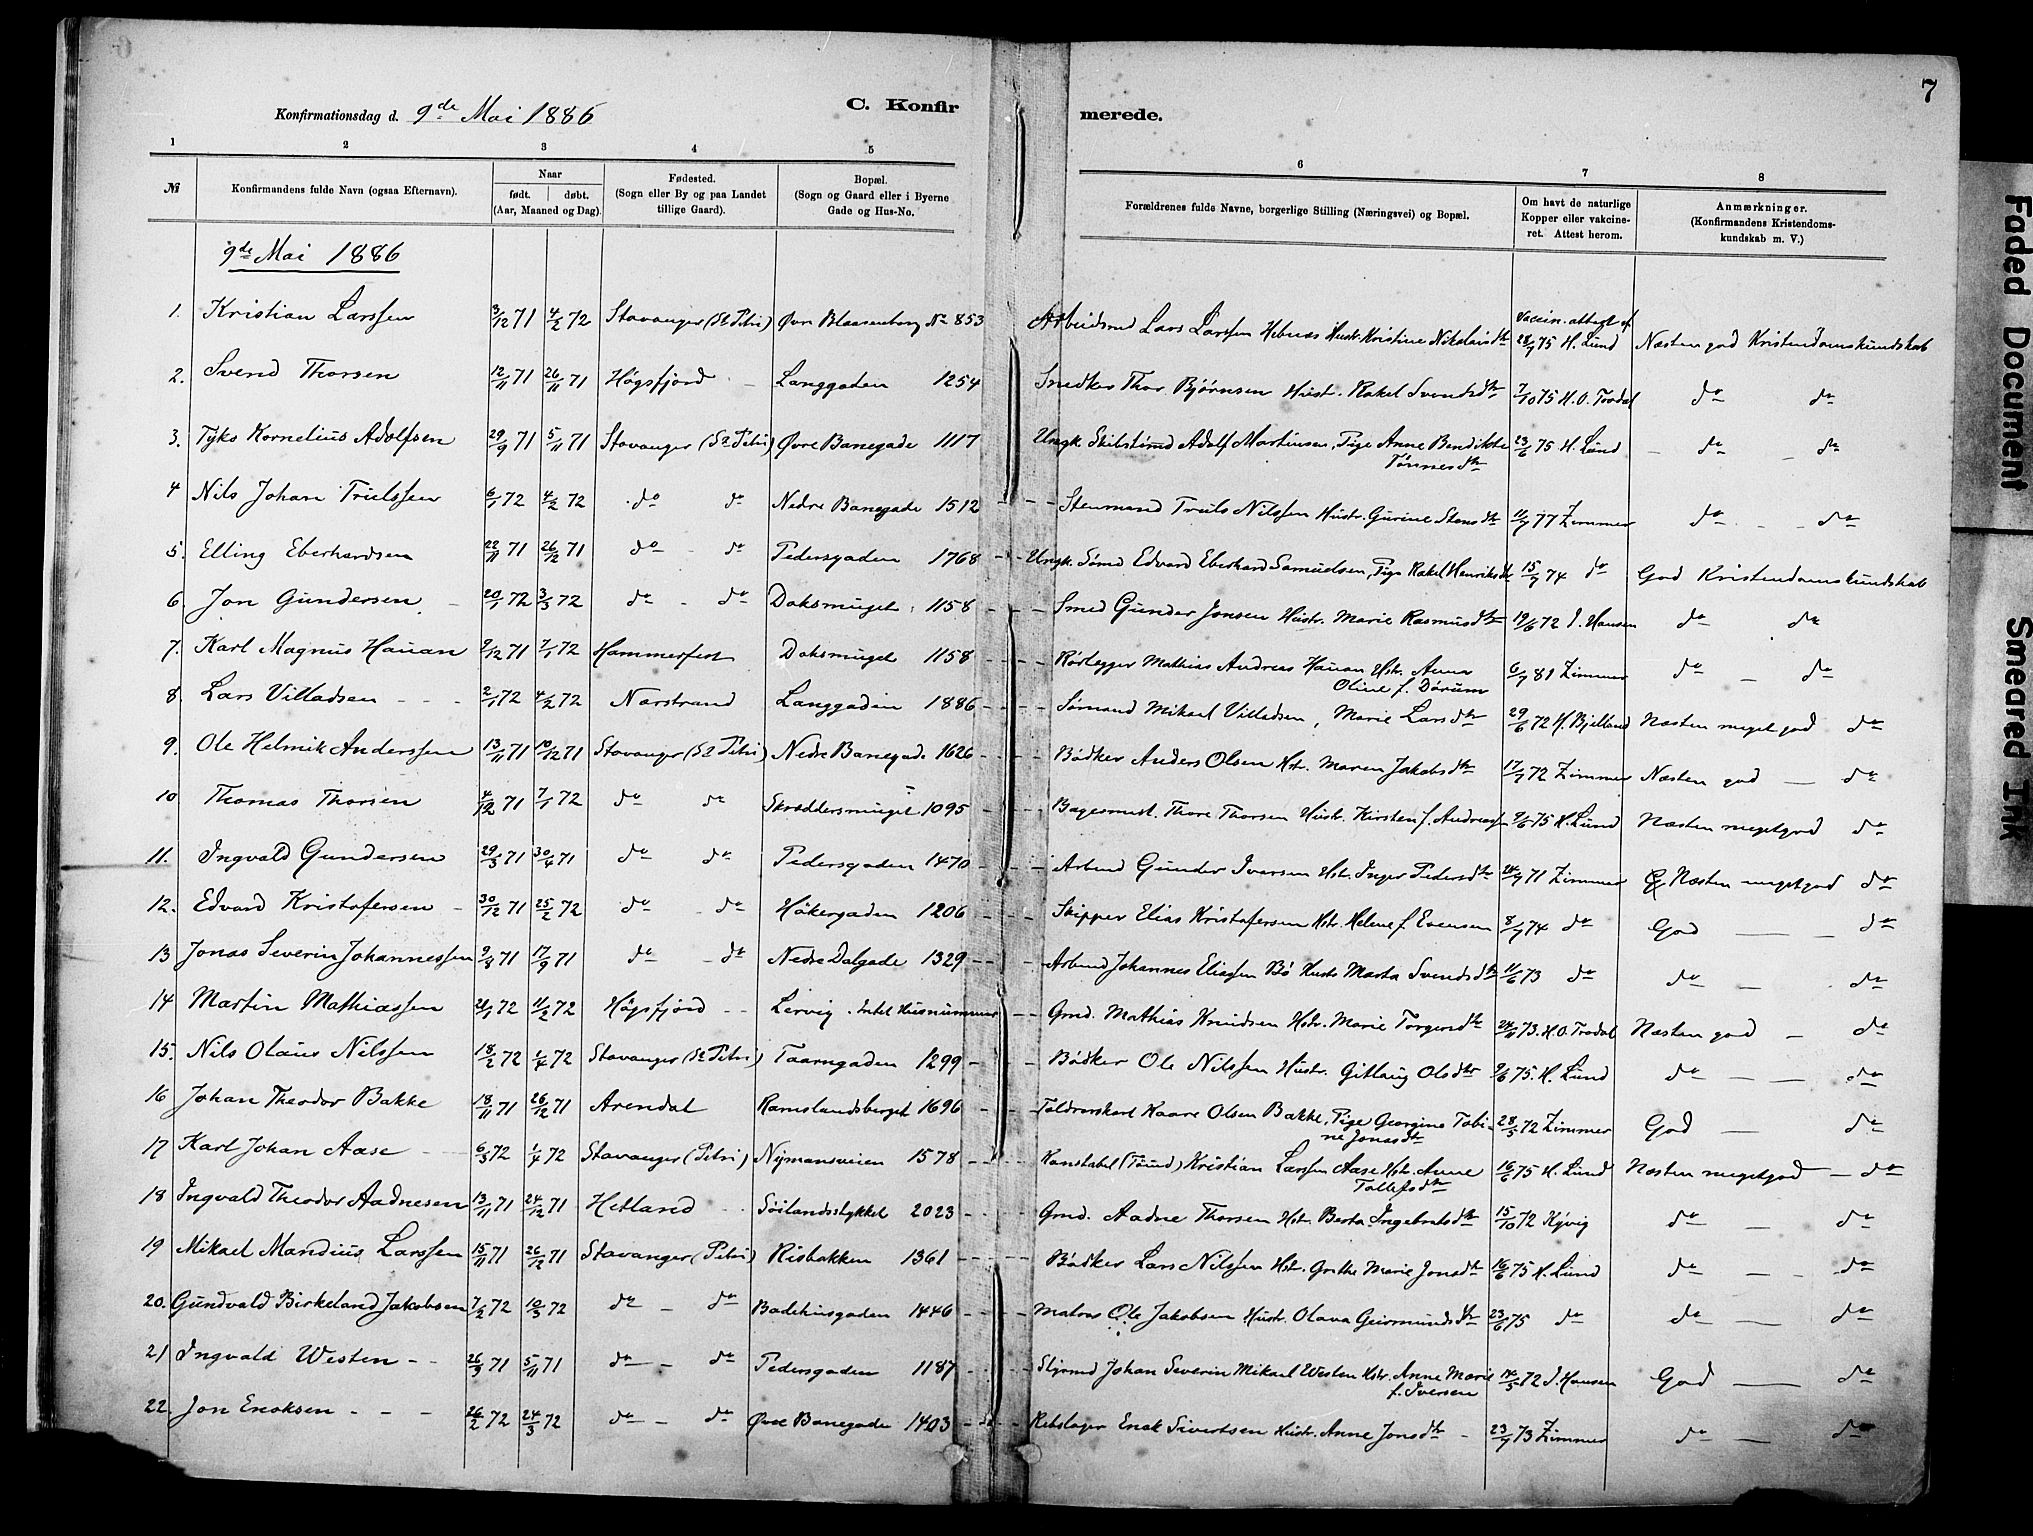 7
Konfirmationsdag d. 9de Mai 1886 C. Konfirmerede.
1 2 3 4 5 6 7 8
№ Konfirmandens fulde Navn (ogsaa Efternavn). Naar født. døbt. (Aar, Maaned og Dag). Fødested. (Sogn eller By og paa Landet tillige Gaard). Bopæl. (Sogn og Gaard eller i Byerne Gade og Hus-No. Forældrenes fulde Navne, borgerlige Stilling (Næringsvei) og Bopæl. Om havt de naturlige Kopper eller vaccineret. Attest herom. Anmærkninger. (Konfirmandens Kristendomskundskab m. V.)
9de Mai 1886
1. Kristian Larssen 3/12 71 4/2 72 Stavanger (St Petri) Øvre Blaasenborg No 853 Arbeidsmd Lars Larssen Hebnes Hustr. Kristine Nikolaisdtr Vaccin. attest af 28/7 75 H. Lund Næsten god Kristendomskundskab
2. Svend Thorsen 12/11 71 26/11 71 Høgsfjord Langgaden 1254 Snedker Thor Bjørnsen Hust. Rakel Svendsdtr 7/10 75 H. O. Trodal do do
3. Tyko Kornelius Adolfsen 29/9 71 5/11 71 Stavanger (St Petri) Øvre Banegade 1117 Ungk. Skibstømd Adolf Martinsen, Pige Anne Bendikte Tønnesdtr 23/6 75 H. Lund do do
4 Nils Johan Trulssen 6/1 72 4/2 72 do do Nedre Banegade 1512 Stenmand Truls Nilssen Hustr. Gurine Stensdtr 11/7 77 Zimmer do do
5. Elling Eberhardsen 22/11 71 26/12 71 do do Pedersgaden 1768 Ungk. Sømd Edvard Eberhard Samuelsen, Pige Rakel Henriksdtr 15/7 74 do God Kristendomskundskab
6 Jon Gundersen 20/1 72 3/3 72 do do Doksmuget 1158 Smed Gunder Jonsen Hustr. Marie Rasmusdtr 19/6 72 J. Hansen do do
7. Karl Magnus Hauan 9/12 71 7/1 72 Hammerfest Doksmuget 1158 Rørlegger Mathias Andreas Hauan Hstr. Anna Oline f. Dørum 6/7 81 Zimmer do do
8 Lars Villadsen 2/1 72 4/2 72 Narstrand Langgaden 1886 Sømand Mikael Villadsen, Marie Larsdtr 29/6 72 H. Bjelland Næsten meget god do
9. Ole Helmik Anderssen 13/11 71 10/12 71 Stavanger (St Petri) Nedre Banegade 1626 Bødker Anders Olsen Hstr. Maren Jakobsdtr 17/7 72 Zimmer Næsten god do
10 Thomas Thorsen 4/12 71 7/1 72 do do Skreddersmuget 1095 Bagesmest. Thore Thorsen Hustr. Kirsten f. Andreasen 9/6 75 H. Lund Næsten megetgod do
11. Ingvald Gundersen 29/3 71 30/4 71 do do Pedersgaden 1470 Arbmd Gunder Iversen Hstr. Inger Pedersdtr 24/7 71 Zimmer Næsten megetgod do
12. Edvard Kristofersen 30/12 71 25/2 72 do do Høkergaden 1206 Skipper Elias Kristofersen Hstr. Helene f. Evensen 8/7 74 do God do
13 Jonas Severin Johannessen 9/8 71 17/9 71 do do Nedre Dalgade 1329 Arbmd Johannes Eliassen Bø Hustr Marta Svendsdtr 11/6 73 do do do
14 Martin Mathiassen 21/1 72 11/2 72 Høgsfjord Lervig. Intet Husnummer Grmd. Mathias Knudsen Hstr. Marie Torgersdtr 24/11 73. H. O. Trodal Næsten god do
15. Nils Olaus Nilssen 18/2 72 1/4 72 Stavanger (St Petri) Taarngaden 1299 Bødker Ole Nilssen Hustr. Gitlaug Olsdtr 9/6 75. H. Lund do do
16 Johan Theodor Bakke 18/11 71 26/12 71 Arendal Ramslandsberget 1696 Toldrorskarl Kaare Olsen Bakke, Pige Georgine Tobine Jonasdtr 28/5 72 Zimmer God do
17 Karl Johan Aase 6/3 72 1/4 72 Stavanger (Petri) Nymansveien 1578 Konstabel (Tømd) Kristian Larssen Aase Hstr. Anne Tollefsdtr 16/6 75 H. Lund Næsten megetgod do
18 Ingvald Theodor Aadnesen 13/11 71 24/12 71 Hetland Søilandsstykket 2023 Grmd. Aadne Thorsen Hstr. Berta Ingebretsdtr 15/10 72 Kyvig do do
19 Mikael Mandius Larssen 15/11 71 26/12 71 Stavanger (Petri) Risbakken 1361 Bødker Lars Nilssen Hstr. Grethe Marie Jonsdtr 16/6 75 H. Lund do do
20. Gundvald Birkeland Jakobsen 7/2 72 10/3 72 do do Badehusgaden 1446 Matros Ole Jakobsen Hustr. Olava Geirmundsdtr 23/6 75 do do do
21 Ingvald Westen 26/9 71 5/11 71 do do Pedersgaden 1187 Styrmd Johan Severin Mikael Westen Hstr. Anne Marie f. Iversen 14/5 72 J. Hansen God do
22. Jon Enoksen 26/2 72 24/3 72 do do Øvre Banegade 1403 Rebslager Enok Sivertsen Hustr. Anne Jonsdtr 23/7 73 Zimmer do do
Faded Document
Smeared Ink